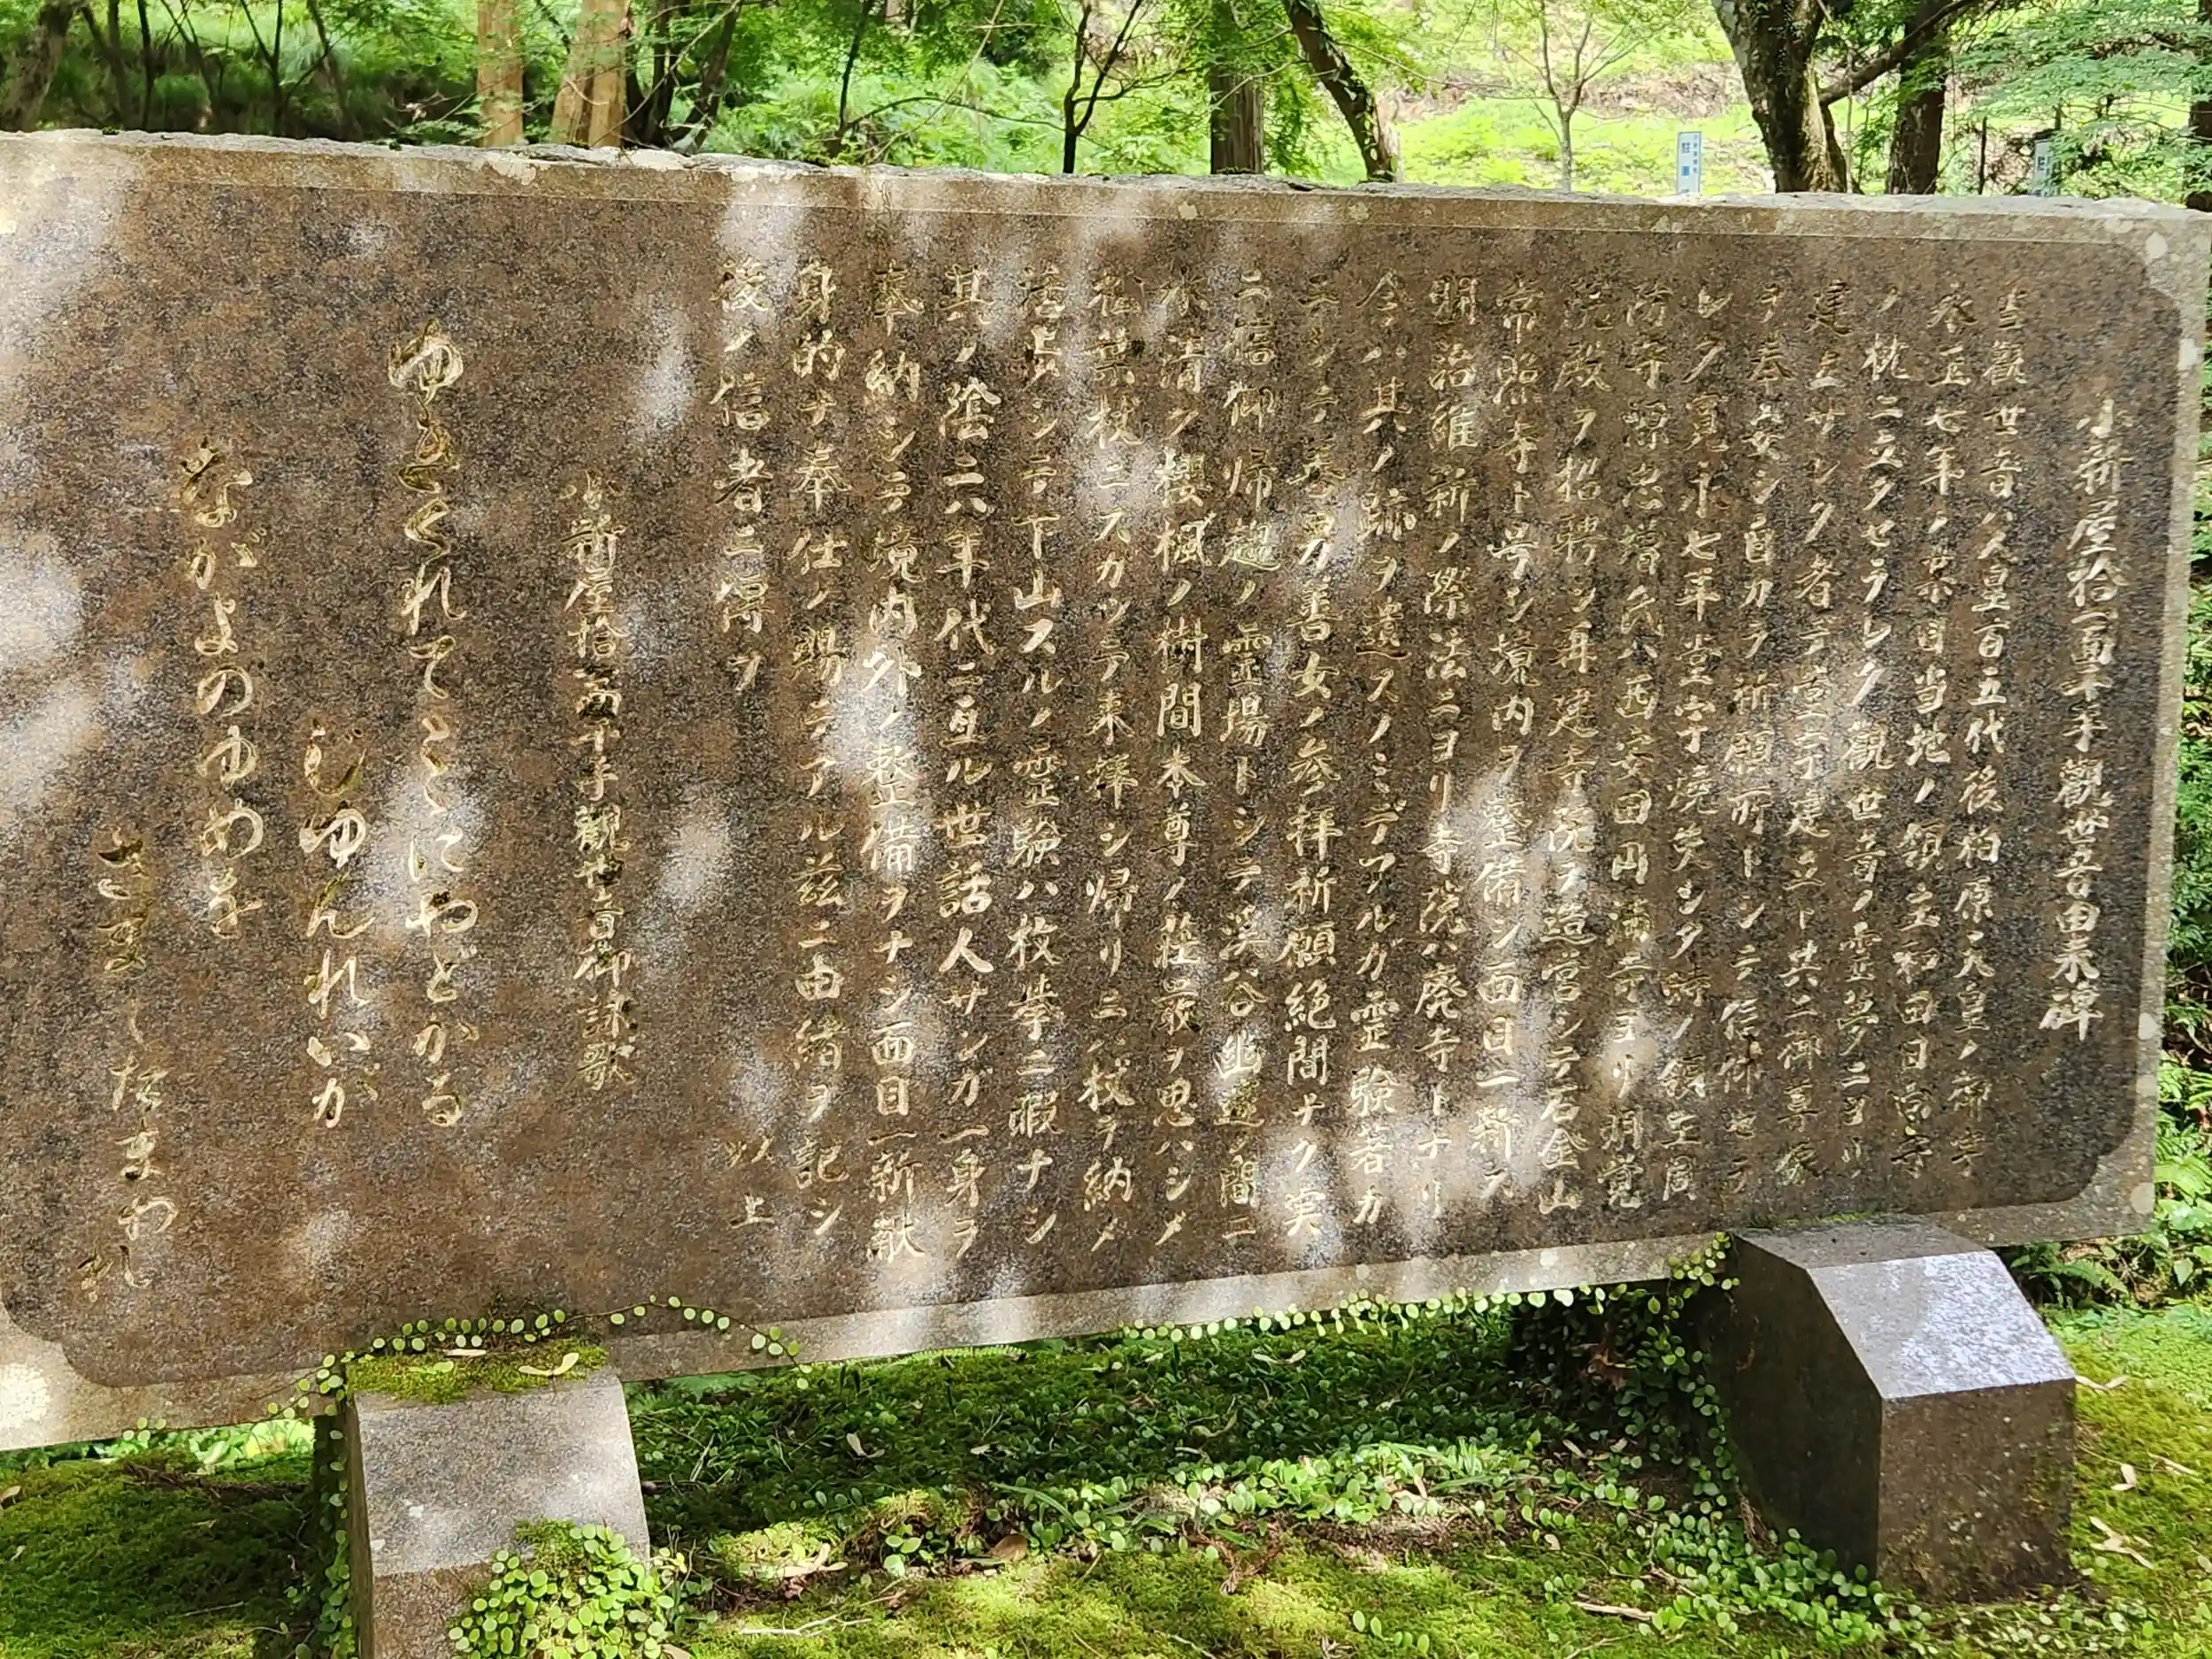 小新屋拾一面千手觀世音由来碑
当観世音ハ人皇百五代後柏原天皇ノ御宇
永正七年ノ某日当地ノ領主和田日向守
ノ枕ニ立タセラレタ観世音ノ霊夢ニヨリ
建立サレタ者デ堂宇建立ト共ニ御尊像
ヲ奉安シ自カラ祈願所トシテ信仰セラ
レタ寛永七年堂宇焼失シタ時ノ領主岡
防守 忠 氏ハ西安田円満寺ヨリ明覚
院殿ヲ招聘シ再建寺院ヲ造営シテ石金山
常照寺ト号シ境内ヲ整備シ面目一新ス
明治維新ノ際法ニヨリ寺院ハ廃寺トナリ
今ハ其ノ跡ヲ遺スノミデアルガ霊験著カ
ニシテ善男善女ノ参拝祈願絶間ナク実
ニ信仰帰趨ノ霊場トシテ溪谷幽邃ノ間ニ
水清ク櫻楓ノ樹間本尊ノ荘厳ヲ思ハシメ
松葉杖ニスガツテ来拝シ帰リニハ杖ヲ納メ
シテ下山スルノ霊験ハ枚挙ニ暇ナシ
其ノ陰ニ六年代ニ亘ル世話人サンガ一身ヲ
奉納シテ境内外ノ整備ヲナシ面目一新献
身的ナ奉仕ノ賜デアル玆ニ由緒ヲ記シ
後ノ信者ニ Stand ヲ
以上
小新屋拾一面千手觀世音御詠歌
ゆきくれてここにやどかる
じゆんれいが
ながよのゆめを
さましたまわれ